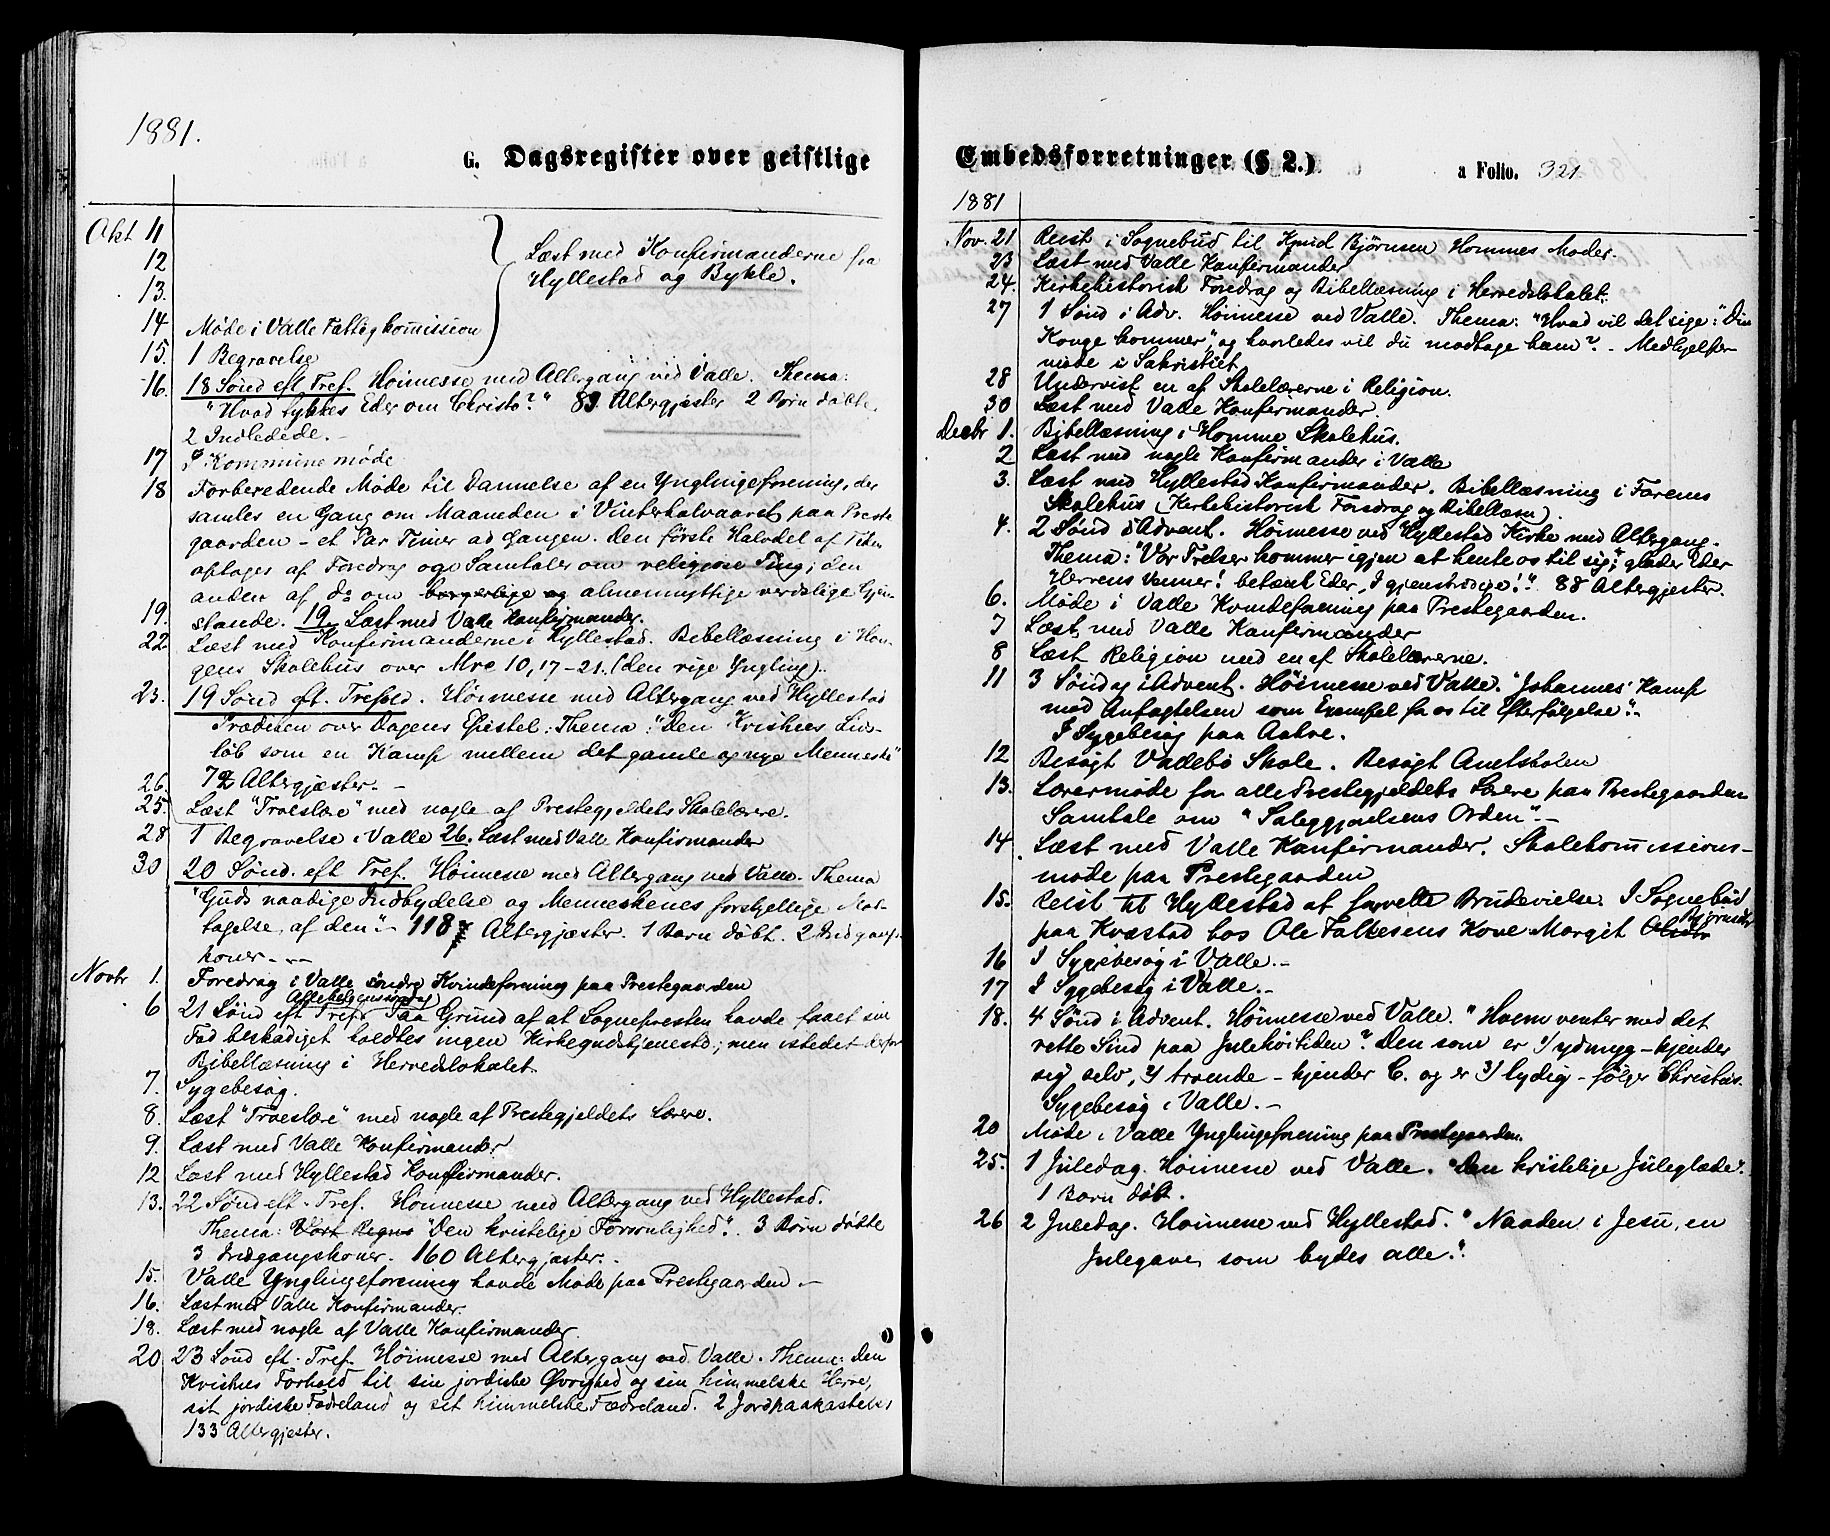 1881.
G. Dagsregister over geistlige
Okt 11
12 Læst med Konfirmanderne fra
13. Hyllestad og Bykle.
14 Møde i Valle Fattigkommission
15. 1 Begravelse
16. 18 Sønd eft Tref. Høimesse med Altergang ved Valle. Thema:
"Hvad tykkes Eder om Christo?" 89 Altergjester 2 Børn døbte.
2 Indledede. -
17 I Kommunemøde
18 Forberedende Møde til Dannelse af en Ynglingeforening, der
samles en Gang om Maaneden i Vinterhalvaaret paa Preste
gaarden - et Par Timer ad Gangen. Den første Halvdel af Tiden
optages af Foredrag og Samtaler om religiøse Ting; den
anden af do om borgerlige og almennyttige verdslige Gjen-
19. stande. 19. Læst med Valle Konfirmander.
22. Læst med Konfirmanderne i Hyllestad. Bibellæsning i Hou-
gens Skolehus over Mrc 10, 17-21. (den rige Yngling).
23. 19 Sønd eft. Trefold. Høimesse med Altergang ved Hyllestad
Prædiken over Dagens Epistel. Thema: "Den Kristnes Livs-
løb som en Kamp mellem det gamle og nye Menneske"
26. 72 Altergjæster. -
25. Læst "Troeslære" med nogle af Prestegjeldets Skolelærere.
28 1 Begravelse i Valle 26. Læst med Valle Konfirmander
30 20 Sønd. eft Tref. Høimesse med Altergang ved Valle. Thema
"Guds naadige Indbydelse og Menneskenes forskjellige Mod-
tagelse af den". - 118 Altergjæster. 1 Barn døbt. 2 Indgangs-
koner. - -
Novbr 1. Foredrag i Valle søndre Kvindeforening paa Prestegaarden
Allehelgensdag
6 21 Sønd eft Tref. Paa Grund af at Sognepresten havde faaet sin
Fod beskadiget holdtes ingen Kirkegudstjeneste; men istedet derfor
Bibellæsning i Herredslokalet.
7. Sygebesøg.
8. Læst "Troeslære" med nogle af Prestegjeldets Lærere.
9. Læst med Valle Konfirmander
12 Læst med Hyllestad Konfirmander.
13. 22 Sønd eft. Tref. Høimesse med Altergang ved Hyllestad.
Thema: Vort Regns "Den kristelige Forsonlighed". 3 Børn døbte
3 Indgangskoner. 160 Altergjæster. -
15. Valle Ynglingeforening havde Møde paa Prestegaarden. -
16. Læst med Valle Konfirmander.
18. Læst med nogle af Valle Konfirmander.
20 23 Sønd eft. Tref. Høimesse med Altergang ved Valle. Thema: Den
Kristnes Forhold til sin jordiske Øvrighed og sin himmelske Herre,
sit jordiske Fædreland og sit himmelske Fædreland. 2 Jordpaakastelser
133 Altergjester.
Embedsforretninger (§ 2.)
a Folio. 321
1881
Nov. 21 Reist i Sognebud til Knud Bjørnsen Hommes Moder.
23 Læst med Valle Konfirmander
24. Kirkehistorisk Foredrag og Bibellæsning i Herredslokalet.
27 1 Sønd i Adv. Høimesse ved Valle. Thema: "Hvad vil det sige: "Din
Konge kommer", og hvorledes vil du modtage ham"? - Medhjelper-
møde i Sakristiet
28 Undervist en af Skolelærerne i Religion.
30 Læst med Valle Konfirmander.
Decbr 1. Bibellæsning i Homme Skolehus.
2 Læst med nogle Konfirmander i Valle
3. Læst med Hyllestad Konfirmander. Bibellæsning i Farens
Skolehus (Kirkehistorisk Foredrag og Bibellæsn).
4. 2 Sønd i Advent. Høimesse ved Hyllestad Kirke med Altergang.
Thema: "Vor Frelser kommer igjen at hente os til sig"; glæder Eder
Herrens Venner! betænk Eder, I gjenstridige!". 88 Altergjester.
6. Møde i Valle Kvindeforening paa Prestegaarden.
7 Læst med Valle Konfirmander
8 Læst Religion med en af Skolelærerne.
11 3 Søndag i Advent. Høimesse ved Valle. "Johannes' Kamp
mod Anfægtelsen som Exempel for os til Efterfølgelse". -
I Sygebesøg paa Aakre.
12 Besøgt Vallebø Skole. Besøgt Amtskolen
13. Lærermøde for alle Prestegjeldets Lærere paa Prestegaarden
Samtale om "Saliggjørelsens Orden". -
14 Læst med Valle Konfirmander. Skolekommissions-
møde paa Prestegaarden
15. Reist til Hyllestad at forrette Brudevielse. I Sognebud
paa Kvæstad hos Ole Talkesens Kone Margit
16 I Sygebesøg i Valle. -
17 I Sygebesøg i Valle. -
18. 4 Sønd i Advent. Høimesse ved Valle. "Hvem venter med det
rette Sind paa Julehøitiden"? Den som er 1/ ydmyg - kjender
sig selv, 2/ troende - kjender C. og er 3/ lydig - følger Christus.
Sygebesøg i Valle. -
20 Møde i Valle Ynglingeforening paa Prestegaarden.
25. 1 Juledag. Høimesse ved Valle. "Den kristelige Juleglæde".
1 Barn døbt.
26 2 Juledag. Høimesse ved Hyllestad. "Naaden i Jesu, en
Julegave, som bydes alle".